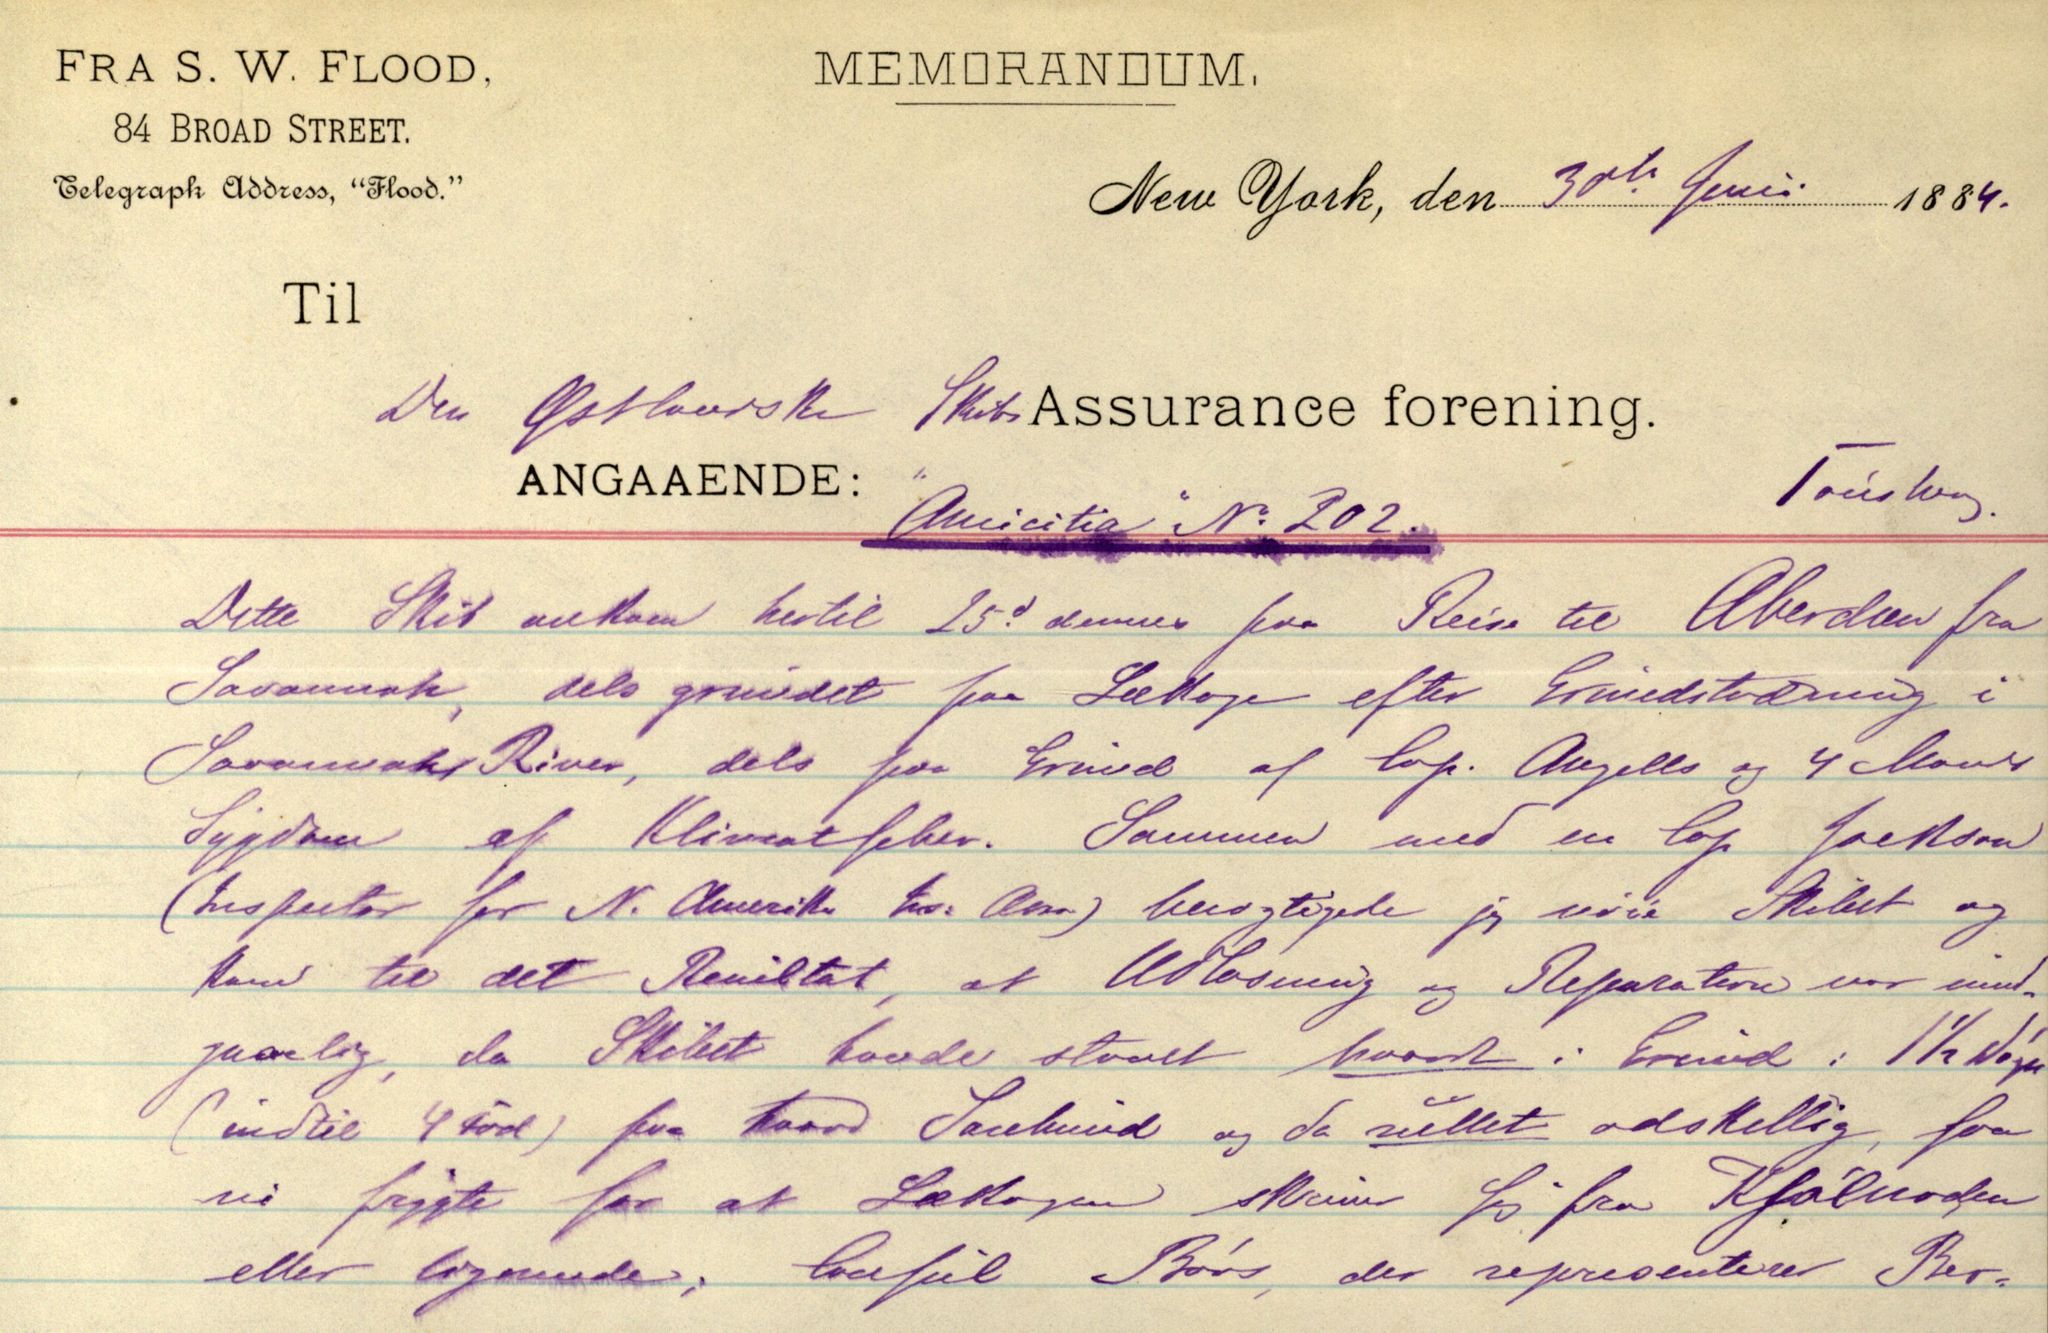 FRA S. W. FLOOD,
84 BROAD STREET.
Telegraph Address, "Flood."
MEMORANDUM.
New York, den 30th Juni 1884.
Til
Den Østlandske Skibs Assurance forening.
Tønsberg.
ANGAAENDE: "Amicitia" No. 202.
Dette Skib ankom hertil 25d dennes paa Reise til Aberdeen fra
Savannah, dels grundet paa Lækage efter Grundstødning i
Savannah River, dels paa Grund af Cap. Angells og 4 Mands
Sygdom af Klimatfeber. Sammen med en Cap Jackson
(Inspector for N. Amerik. Ass) besigtigede jeg nøie Skibet og
kom til det Resultat, at Udlosning og Reparation var und-
gaaelig, da Skibet havde staaet haardt i Grund i 1½ Døgn
(indtil 4 Fod) paa haard Sandbund og da rullet adskillig, saa
vi frygte for at Lækagen skriver sig fra Kjølnaden
eller lignende; Consul Børs, der representerer Ber-